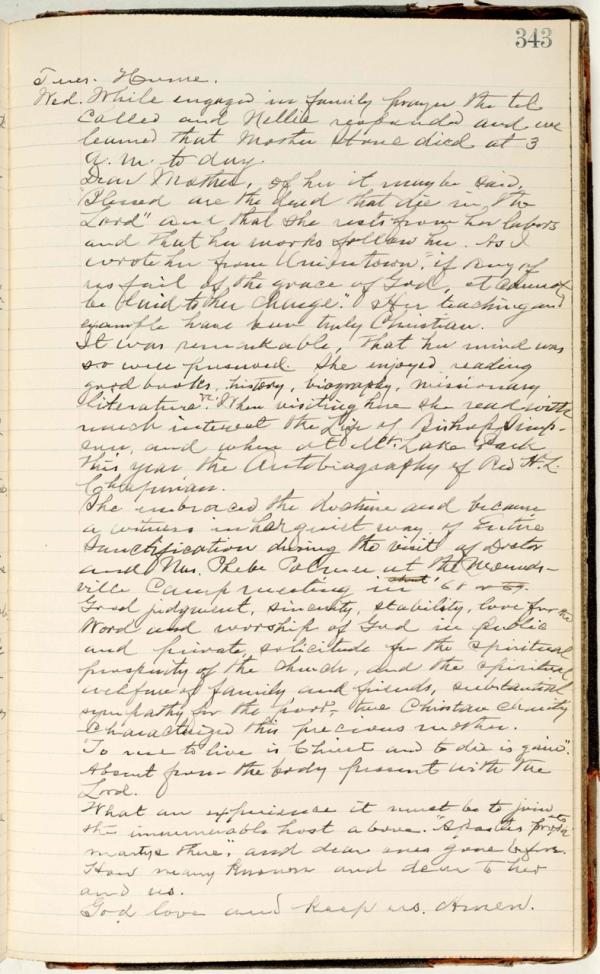 343
Tues. Home.
Wed. While engaged in family prayer the tel
called and Nellie responded and we
learned that Mother Stone died at 3
A.M. to day.
Dear Mother, of her it may be said,
"Blessed are the dead that die in the
Lord" and that she rests from her labors
and that her works follow her. As I
wrote her from Uniontown, "if any of
us fail of the grace of God, it cannot
be laid to her charge." Her teaching and
example have been truly Christian.
It was remarkable, that her mind was
so well preserved. She enjoyed reading
good books, history, biography, missionary
literature &c. When visiting here she read with
much interest the Life of Bishop Simp-
son, and when at Mt. Lake Park
this year the Autobiography of Rev H. L.
Chapman.
She embraced the doctrine and became
a witness in her quiet way, of Entire
Sanctification during the visit of Doctor
and Mrs. Phebe Palmer at the Mounds-
ville Camp meeting in about '68 or 69.
Good judgment, sincerity, stability, love for the
Word and worship of God in public
and private, solicitude for the spiritual
prosperity of the church, and the spiritual
welfare of family and friends, substantial
sympathy for the poor, true Christian charity
characterized this precious mother.
"To me to live is Christ and to die is gain".
Absent from the body present with the
Lord.
What an experience it must be to join
the innumerable host above. "Apostles prophets
martyrs there", and dear ones gone before.
How many known and dear to her
and us.
God love and keep us. Amen.